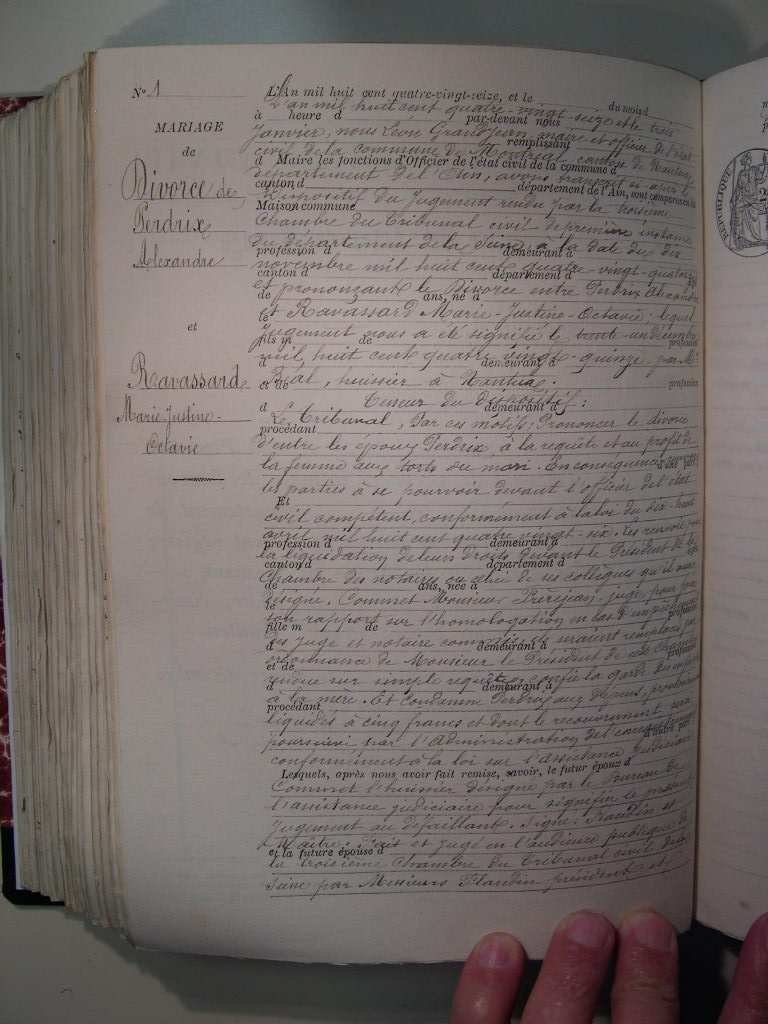 N° 1
MARIAGE
de
Divorce de
Perdrix
Alexandre
et
Ravassard
Marie-Justine-
Octavie
L'An mil huit cent quatre-vingt-seize, et le du mois d
L'an mil huit cent quatre-vingt-seize et le trois
à heure d par-devant nous
Janvier, nous Léon Grandjean, maire et officier de l'état
remplissant
civil de la commune de Montréal, canton de Nantua
d Maire les fonctions d'Officier de l'état civil de la commune d
département de l'Ain, avons transcrit ci-après le
canton d département de l'Ain, sont comparus en la
Dispositif du Jugement rendu par la troisième
Maison commune
Chambre du Tribunal civil de première instance
du département de la Seine, à la date du dix
profession d demeurant à
novembre mil huit cent quatre vingt-quatorze
canton d département d
et prononçant le Divorce entre Perdrix Alexandre
de ans, né à
et Ravassard Marie-Justine-Octavie. lequel
le
jugement nous a été signifié le trente-un décembre
fils m de profession
mil huit cent quatre vingt-quinze par Me
d demeurant à
huissier à Nantua.
et de profession
Teneur du dispositif:
d demeurant à
Le Tribunal, Par ces motifs, Prononce le divorce
procédant
d'entre les époux Perdrix à la requête et au profit de
la femme aux torts du mari. En conséquence
d'une part
les parties à se pourvoir devant l'officier de l'état
Et
civil compétent, conformément à la loi du dix-huit
avril mil huit cent quatre vingt-six. Les renvoie pour
profession d demeurant à
la liquidation de leurs droits devant le Président de la
canton d département d
Chambre des notaires ou celui de ses collègues qu'il aura
de ans, née à
désigné. Commet Monsieur juge, pour faire
le
son rapport sur l'homologation en cas d'empêchement
fille m de profession
des juge et notaire commis, ils seraient remplacés par
d demeurant à
ordonnance de Monsieur le Président de cette Chambre
et de profession
rendue sur simple requête confie la garde des enfants
d demeurant à
à la mère. Et condamne Perdrix aux dépens,
procédant
liquidés à cinq francs et dont le recouvrement sera
d'autre part
poursuivi par l'Administration de l'enregistrement
conformément à la loi sur l'assistance judiciaire
Lesquels, après nous avoir fait remise, savoir, le futur époux d
Commet l'huissier désigné par le bureau de
l'assistance judiciaire pour signifier le présent
jugement au défaillant. Signé: Flandin et
Fait et jugé en l'audience publique de
et la future épouse d
la troisième Chambre du Tribunal civil de la
Seine par Messieurs Flandin président et